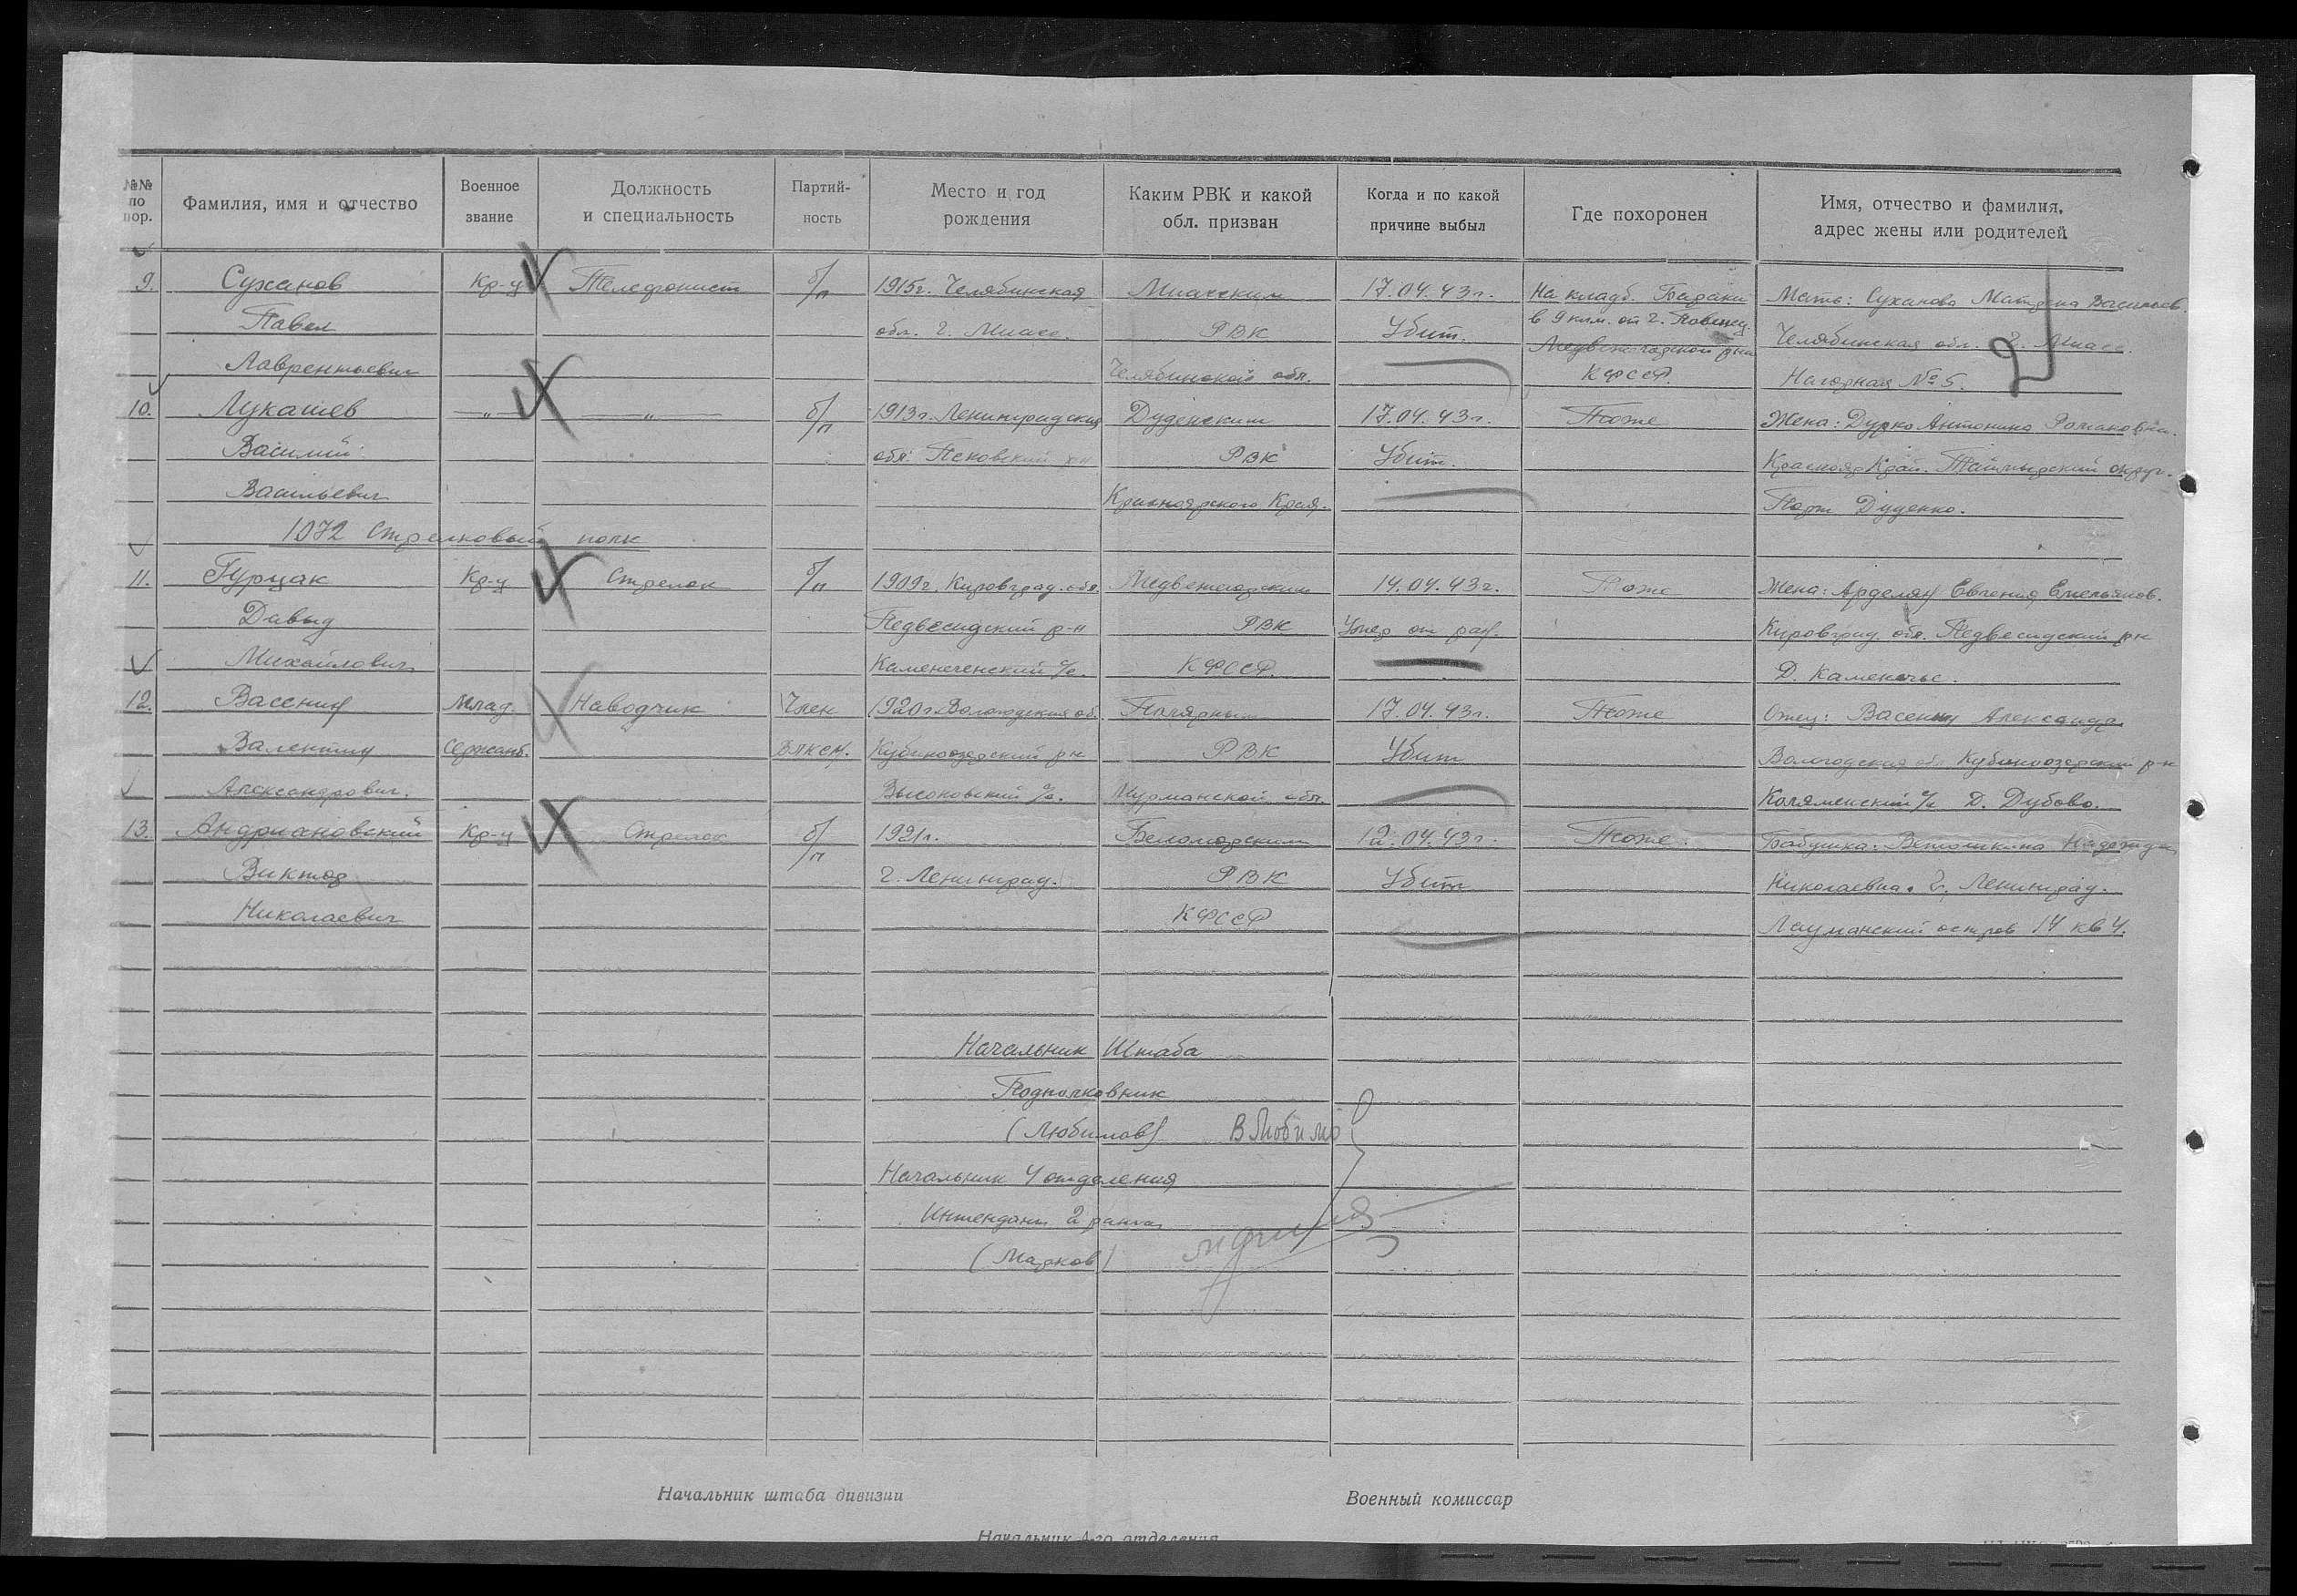 №№ по пор.
Фамилия, имя и отчество
Военное звание
Должность и специальность
Партий-ность
Место и год рождения
Каким РВК и какой обл. призван
Когда и по какой причине выбыл
Где похоронен
Имя, отчество и фамилия, адрес жены или родителей
9. Суханов Кр-ц Телефонист б/п 1915г. Челябинская Миасским 17.04.43г. На кладб. Мать: Суханова Матрена Васильев.
Павел обл. г. Миасс. РВК Убит. в 9 клм. от г. Повенец. Челябинская обл. г. Миасс.
Лаврентьевич Челябинской обл. Медвежегорской р-на КФССР. Нагорная № 5.
10. Лукашев —„— —„— б/п 1913г. Ленинградская 17.04.43г. Тоже Жена: Дурко Антонина Романовна.
Василий обл. Псковский р-н РВК Убит. Краснояр. Край. Таймырский округ.
Васильевич Красноярского Края.
1072 Стрелковый полк
11. Кр-ц Стрелок б/п 1909г. Кировград. обл. Медвежегорским 14.04.43г. Тоже Жена: Арделян Евгения Емельянов.
Давыд р-н РВК Умер от ран. Кировград. обл. р-н
Михайлович КФССР. Д.
12. Васенин Млад. Наводчик Член 1920г. Вологодская об. Полярным 17.04.43г. Тоже Отец: Васенин Александр
Валентин Сержант. ВЛКСМ. Кубиноозерский р-н РВК Убит Вологодская обл. Кубиноозерский р-н
Александрович. Высоковский с/с. Мурманской обл. Д. Дубово.
13. Андриановский Кр-ц Стрелок б/п 1921г. Беломорским 12.04.43г. Тоже. Бабушка: Ветошкина Надежда
Виктор г. Ленинград. РВК Убит Николаевна. г. Ленинград.
Николаевич КФССР остров 14 кв 4.
2
Начальник Штаба
Подполковник
(Любимов) ВЛюбимо
Начальник 4 отделения
Интендант 2 ранга
(Марков)
Начальник штаба дивизии
Военный комиссар
Начальник 4-го отделения